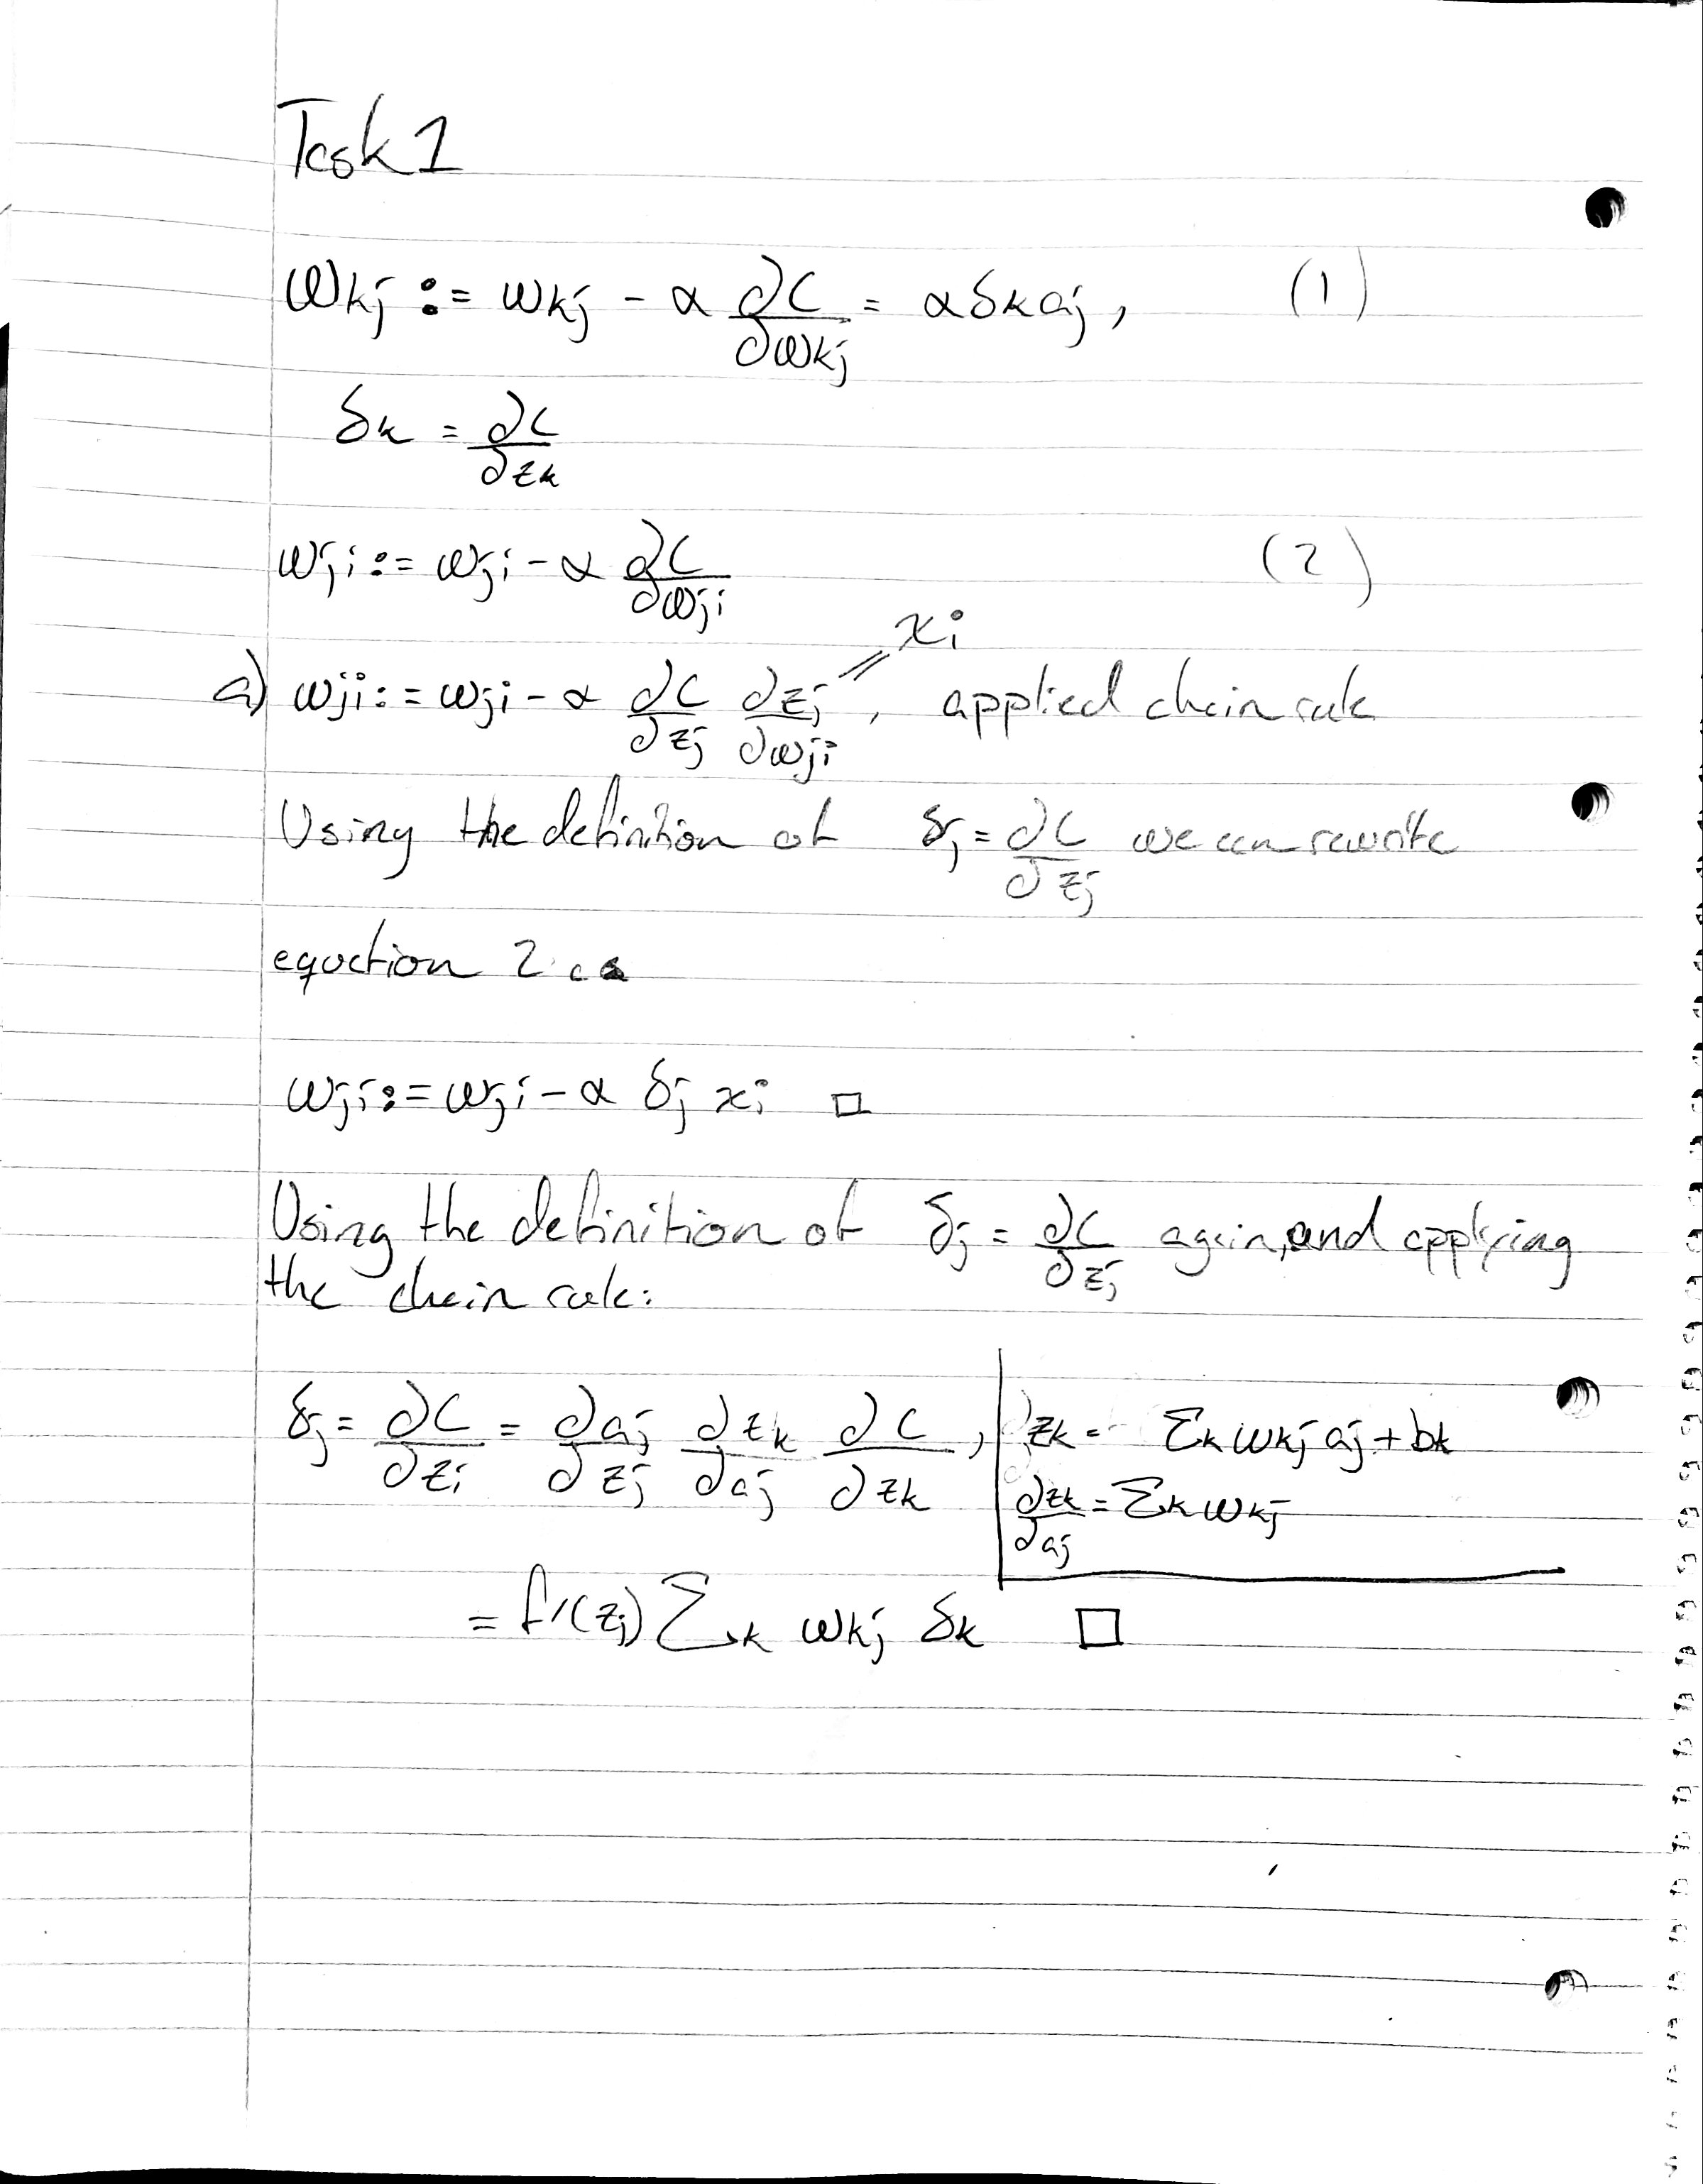 Task 1
ωkj := ωkj - α ∂C/∂ωkj = αδkaj, (1)
δk = ∂C/∂zk
ωji := ωji - α ∂C/∂ωji (2)
a) ωji := ωji - α ∂C/∂zj ∂zj/∂ωji = xi, applied chain rule
Using the definition of δj = ∂C/∂zj we can rewrite
equation 2 as
ωji := ωji - α δj xi □
Using the definition of δj = ∂C/∂zj again, and applying
the chain rule:
δj = ∂C/∂zi = ∂aj/∂zj ∂zk/∂aj ∂C/∂zk, | zk = Σk ωkj aj + bk
∂zk/∂aj = Σk ωkj
= f'(zj) Σk ωkj δk □